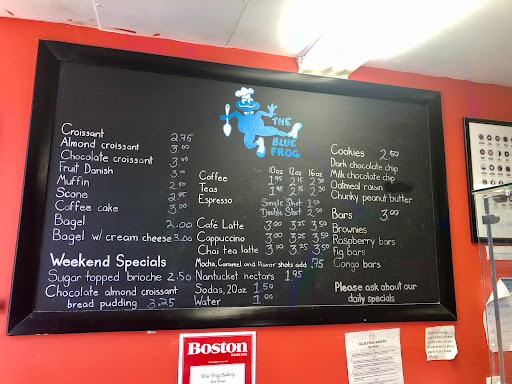 THE
BLUE
FROG
Croissant 2.75
Almond croissant 3.00
Chocolate croissant 3.00
Fruit Danish 3.00
Muffin 2.50
Scone 2.75
Coffee cake 3.00
Bagel 2.00
Bagel w/ cream cheese 3.00
Weekend Specials
Sugar topped brioche 2.50
Chocolate almond croissant
bread pudding 3.25
10oz 12oz 16oz
Coffee 1.95 2.15 2.30
Teas 1.95 2.15 2.30
Espresso Single Shot 1.50
Double Shot 2.50
Café Latte 3.00 3.25 3.50
Cappuccino 3.00 3.25 3.50
Chai tea latte 3.00 3.25 3.50
Mocha, Caramel and flavor shots add .75
Nantucket nectars 1.95
Sodas, 20oz 1.50
Water 1.00
Cookies 2.50
Dark chocolate chip
Milk chocolate chip
Oatmeal raisin
Chunky peanut butter
Bars 3.00
Brownies
Raspberry bars
Fig bars
Congo bars
Please ask about our
daily specials
Boston
MAGAZINE
Blue Frog Bakery
BLUE FROG BAKERY